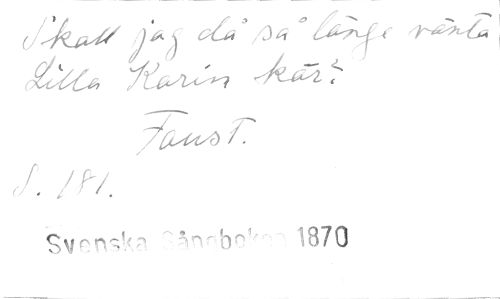 Skall jag då så länge vänta
Lilla Karin kär?
Faust.
S. 181.
Svenska Sångboken 1870